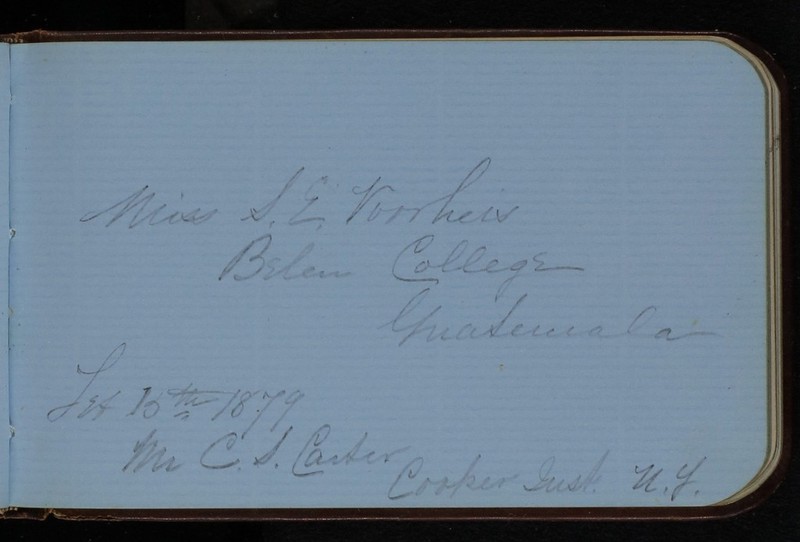 Miss S. E. Voorheis
Belen College
Guatemala
15th 1879
Mr C. S. Carter
Cooper Inst. N.Y.